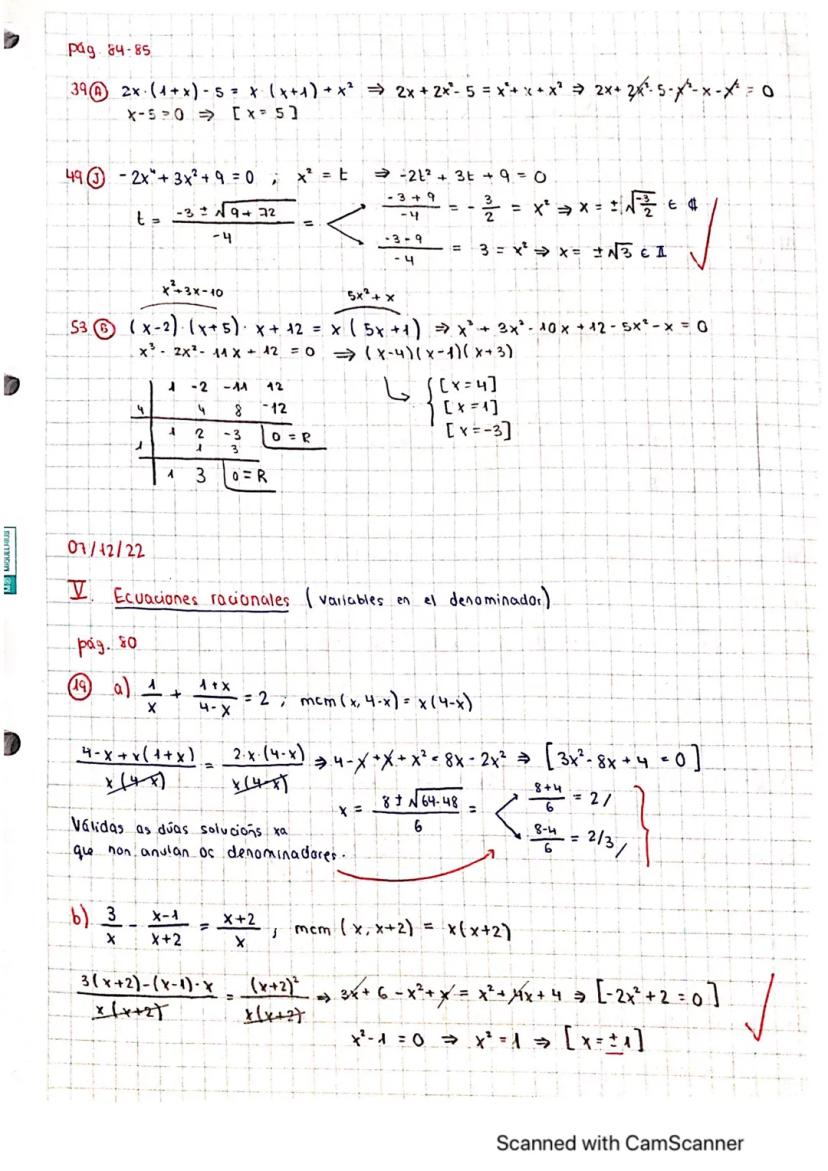 pág. 84-85
39 A) 2x·(1+x)-5 = x·(x+1)+x² ⇒ 2x+2x²-5 = x²+x+x² ⇒ 2x+2x²-5-x²-x-x² = 0
x-5=0 ⇒ [x=5]
49 J) -2x⁴+3x²+9=0 ; x² = t ⇒ -2t²+3t+9=0
t = (-3±√(9+72))/-4 = < (-3+9)/-4 = -3/2 = x² ⇒ x = ±√(-3/2) ∈ ₵
(-3-9)/-4 = 3 = x² ⇒ x = ±√3 ∈ II
x²+3x-10 5x²+x
53 B) (x-2)·(x+5)·x+12 = x(5x+1) ⇒ x³+3x²-10x+12-5x²-x=0
x³-2x²-11x+12=0 ⇒ (x-4)(x-1)(x+3)
1 -2 -11 12
4 4 8 -12
1 2 -3 0=R
1 1 3
1 3 0=R
[x=4]
[x=1]
[x=-3]
07/12/22
V. Ecuaciones racionales (variables en el denominador)
pág. 80
19 a) 1/x + (1+x)/(4-x) = 2 ; mcm(x, 4-x) = x(4-x)
(4-x+x(1+x))/(x(4-x)) = (2·x·(4-x))/(x(4-x)) ⇒ 4-x+x+x² = 8x-2x² ⇒ [3x²-8x+4=0]
x = (8±√(64-48))/6 = < (8+4)/6 = 2/
(8-4)/6 = 2/3/
Válidas as dúas solucións xa
que non anulan os denominadores.
b) 3/x - (x-1)/(x+2) = (x+2)/x ; mcm(x, x+2) = x(x+2)
(3(x+2)-(x-1)·x)/(x(x+2)) = (x+2)²/(x(x+2)) ⇒ 3x+6-x²+x = x²+4x+4 ⇒ [-2x²+2=0]
x²-1=0 ⇒ x²=1 ⇒ [x=±1]
Scanned with CamScanner